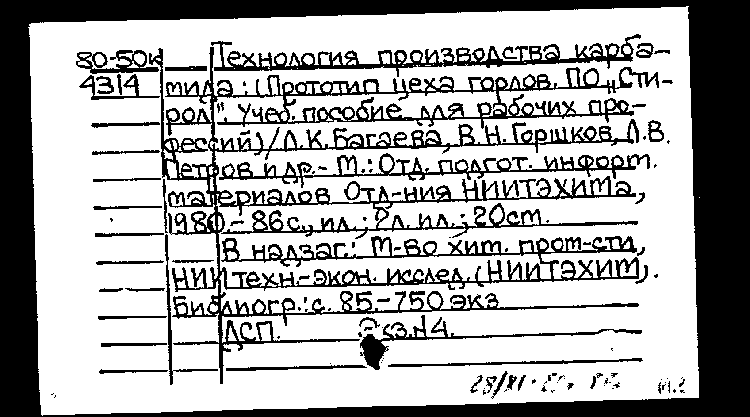 80-50к Технология производства карба-
4314 мида: (Прототип цеха горлов. ПО „Сти-
рол". Учеб. пособие для рабочих про-
фессий)/Л.К. Багаева, В.Н. Горшков, Л.В.
Петров и др.- М.: Отд. подгот. информ.
материалов Отд-ния НИИТЭХИМа,
1980.- 86с., ил.; 2л. ил.; 20см.
В надзаг.: М-во хим. пром-сти,
НИИ техн.-экон. исслед. (НИИТЭХИМ).
Библиогр.: с. 85.-750 экз
ДСП. Экз.№4.
28/XI-